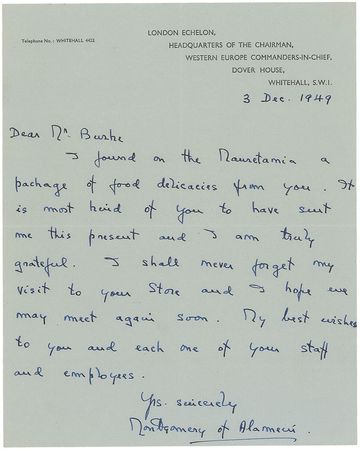 LONDON ECHELON,
Telephone No.: WHITEHALL 4422
HEADQUARTERS OF THE CHAIRMAN,
WESTERN EUROPE COMMANDERS-IN-CHIEF,
DOVER HOUSE,
WHITEHALL, S.W.1.
3 Dec. 1949
Dear Mr. Burke
I found on the Mauretania a
package of food delicacies from you. It
is most kind of you to have sent
me this present and I am truly
grateful. I shall never forget my
visit to your Store and I hope we
may meet again soon. My best wishes
to you and each one of your staff
and employees.
Yrs. sincerely
Montgomery of Alamein.